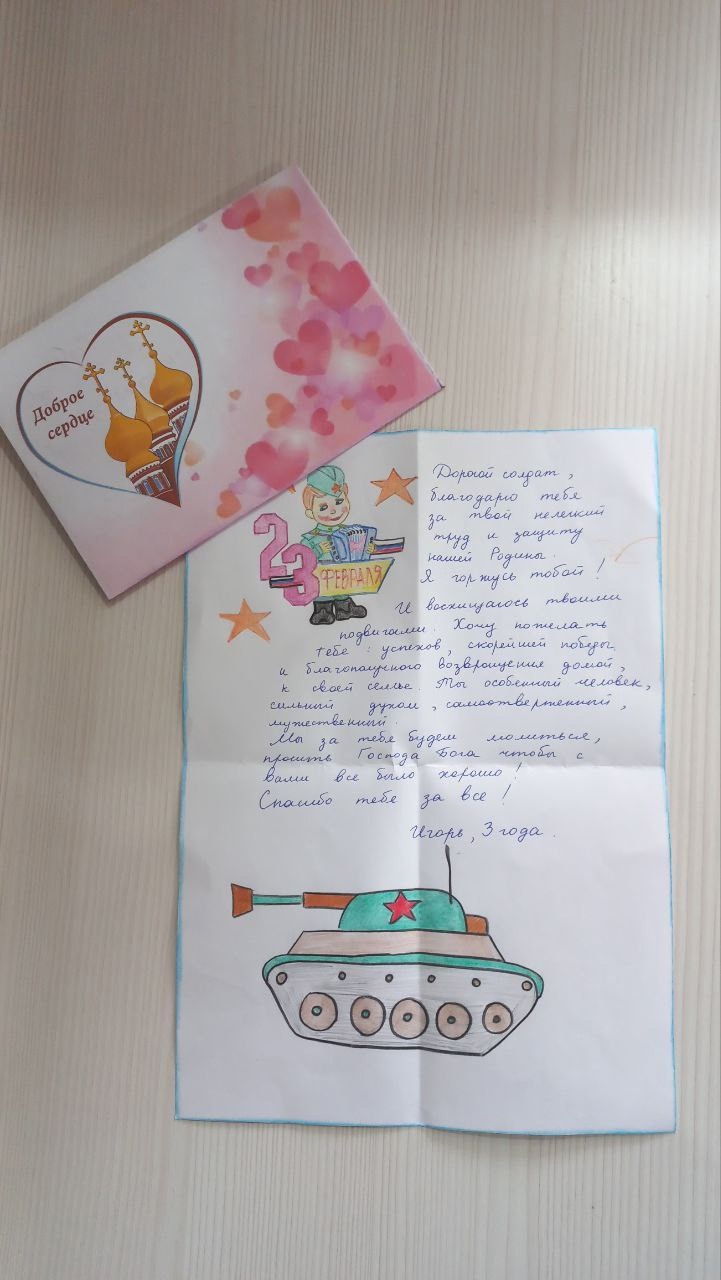 Доброе
сердце
23
ФЕВРАЛЯ
Дорогой солдат,
благодарю тебя
за твой нелегкий
труд и защиту
нашей Родины.
Я горжусь тобой!
И восхищаюсь твоими
подвигами. Хочу пожелать
тебе: успехов, скорейшей победы
и благополучного возвращение домой,
к своей семье. Ты особенный человек,
сильный духом, самоотверженный,
мужественный.
Мы за тебя будем молиться,
просить Господа Бога чтобы с
вами все было хорошо!
Спасибо тебе за все!
Игорь, 3 года.